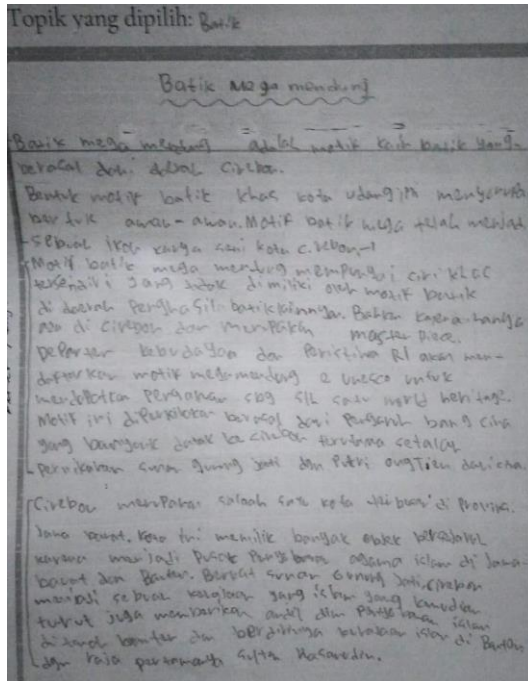 Topik yang dipilih: Batik
Batik Mega mendung
Batik mega mendung adalah motik kain batik yang
berasal dari daerah Cirebon.
Bentuk motif batik khas kota udang ini menyerupai
bentuk awan-awan. Motif batik mega telah menjadi
sebuah ikon karya seni kota Cirebon
Motif batik mega mendung mempunyai ciri khas
tersendiri yang tidak dimiliki oleh motif batik
di daerah Penghasil batik lainnya. Bahkan karena hanya
ada di Cirebon dan merupakan master Piece.
Departen kebudayaan dan Pariwisata RI akan men-
daftarkan motif mega mendung e unesco untuk
mendapatkan pengakuan sbg slh satu world heritage.
Motif ini diperkirakan berasal dari Pengaruh bang cina
yang banyak datang ke cirebon terutama setelah
Pernikahan sunan gunung jati dan Putri ong Tien dari cina.
Cirebon merupakan salah satu kota terbesar di Provinsi
Jawa barat. Kota ini memilik bangak objek bersejarah
karena menjadi Pusat Penyebaran agama islam di Jawa
barat dan Banten. Berkat sunan Gunung Jati, cirebon
menjadi sebuah kerajaan yang islam yang kemudian
turut juga memberikan andil dlm Penyebaran islam
di tanah banten dan berdirinya kerajaan islam di Banten
dgn raja pertamanya sultan Hasanudin.